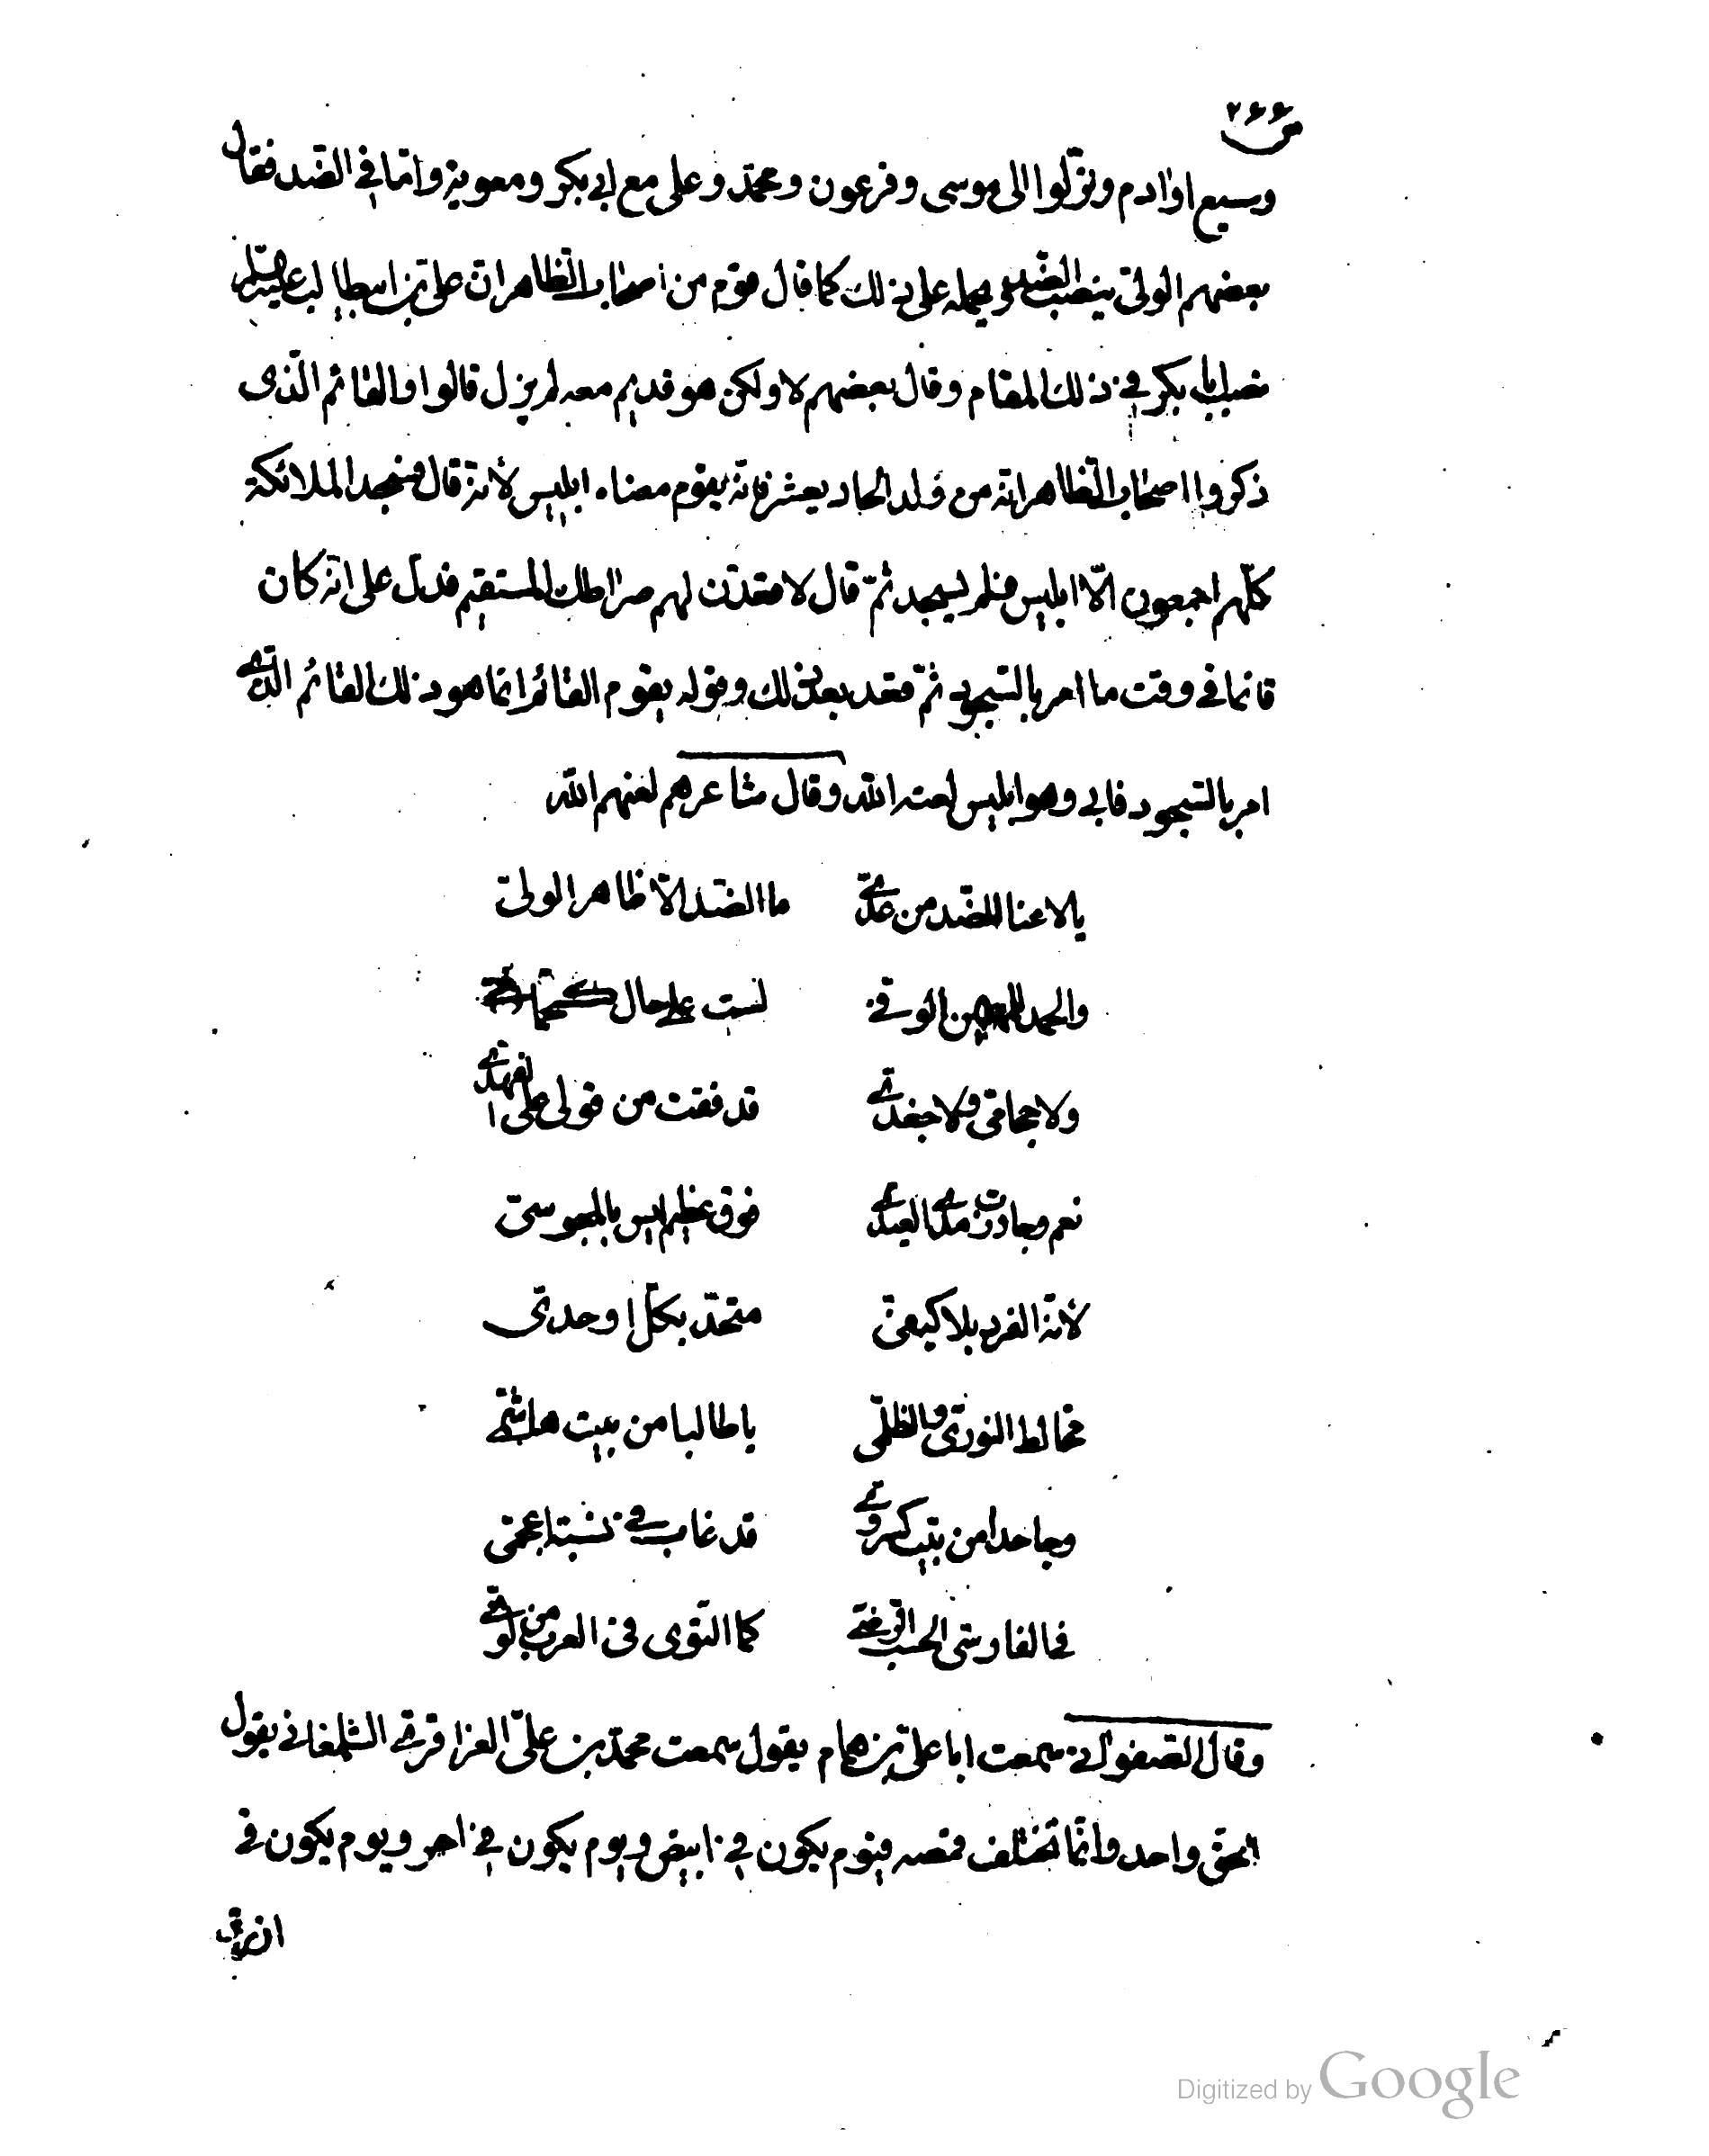 ص ٢٤٤
وسبع اوادم ونزّلوا الى موسى وفرعون ومحمّد وعلى مع ابى بكر ومعوية وامّا فى الضد فقال
بعضهم الولىّ ينصب الضد ويحمله على ذلك كما قال قوم من اصحاب الظاهر انّ على بن ابيطالب عليه السلم
نصب ابا بكر فى ذلك المقام وقال بعضهم لا ولكن هو قديم معه لم يزل قالوا والقائم الّذى
ذكروا اصحاب الظاهر انّه من ولد الحادى عشر فانّه يقوم معناه ابليس لأنّه قال فسجد الملائكة
كلّهم اجمعون الّا ابليس فلم يسجد ثمّ قال لاقعدنّ لهم صراطك المستقيم فدلّ على انّه كان
قائما فى وقت ما امر بالسّجود ثمّ قعد بعد ذلك وقوله يقوم القائم انّما هو ذلك القائم الّذى
امر بالسّجود فابى وهو ابليس لعنه الله وقال شاعرهم لعنهم الله
يا لاعنا للضدّ من عدىّ ما الضدّ الّا ظاهر الولىّ
والحمد للمهيمن الوفىّ لست على حال كحمّامىّ
ولا حجامىّ ولا جغدىّ قد فقت من قولى على الفهدىّ
نعم وجاوزت مدى العبدىّ فوق عظيم ليس بالمجوسىّ
لأنّه الفرد بلا كيفىّ متّحد بكلّ اوحدىّ
مخالط النورىّ والظلمىّ يا طالبا من بيت هاشمىّ
وجاحدا من بيت كسروىّ قد غاب فى نسبة اعجمىّ
فى الفارسىّ الحسب الرضىّ كما التوى فى العرب من لوىّ
وقال الصفوانى سمعت ابا على بن همام يقول سمعت محمّد بن علىّ العزاقرىّ الشلمغانى يقول
الحق واحد وانّما تختلف قمصه فيوم يكون فى ابيض ويوم يكون فى احمر ويوم يكون فى
ازرق
Digitized by Google